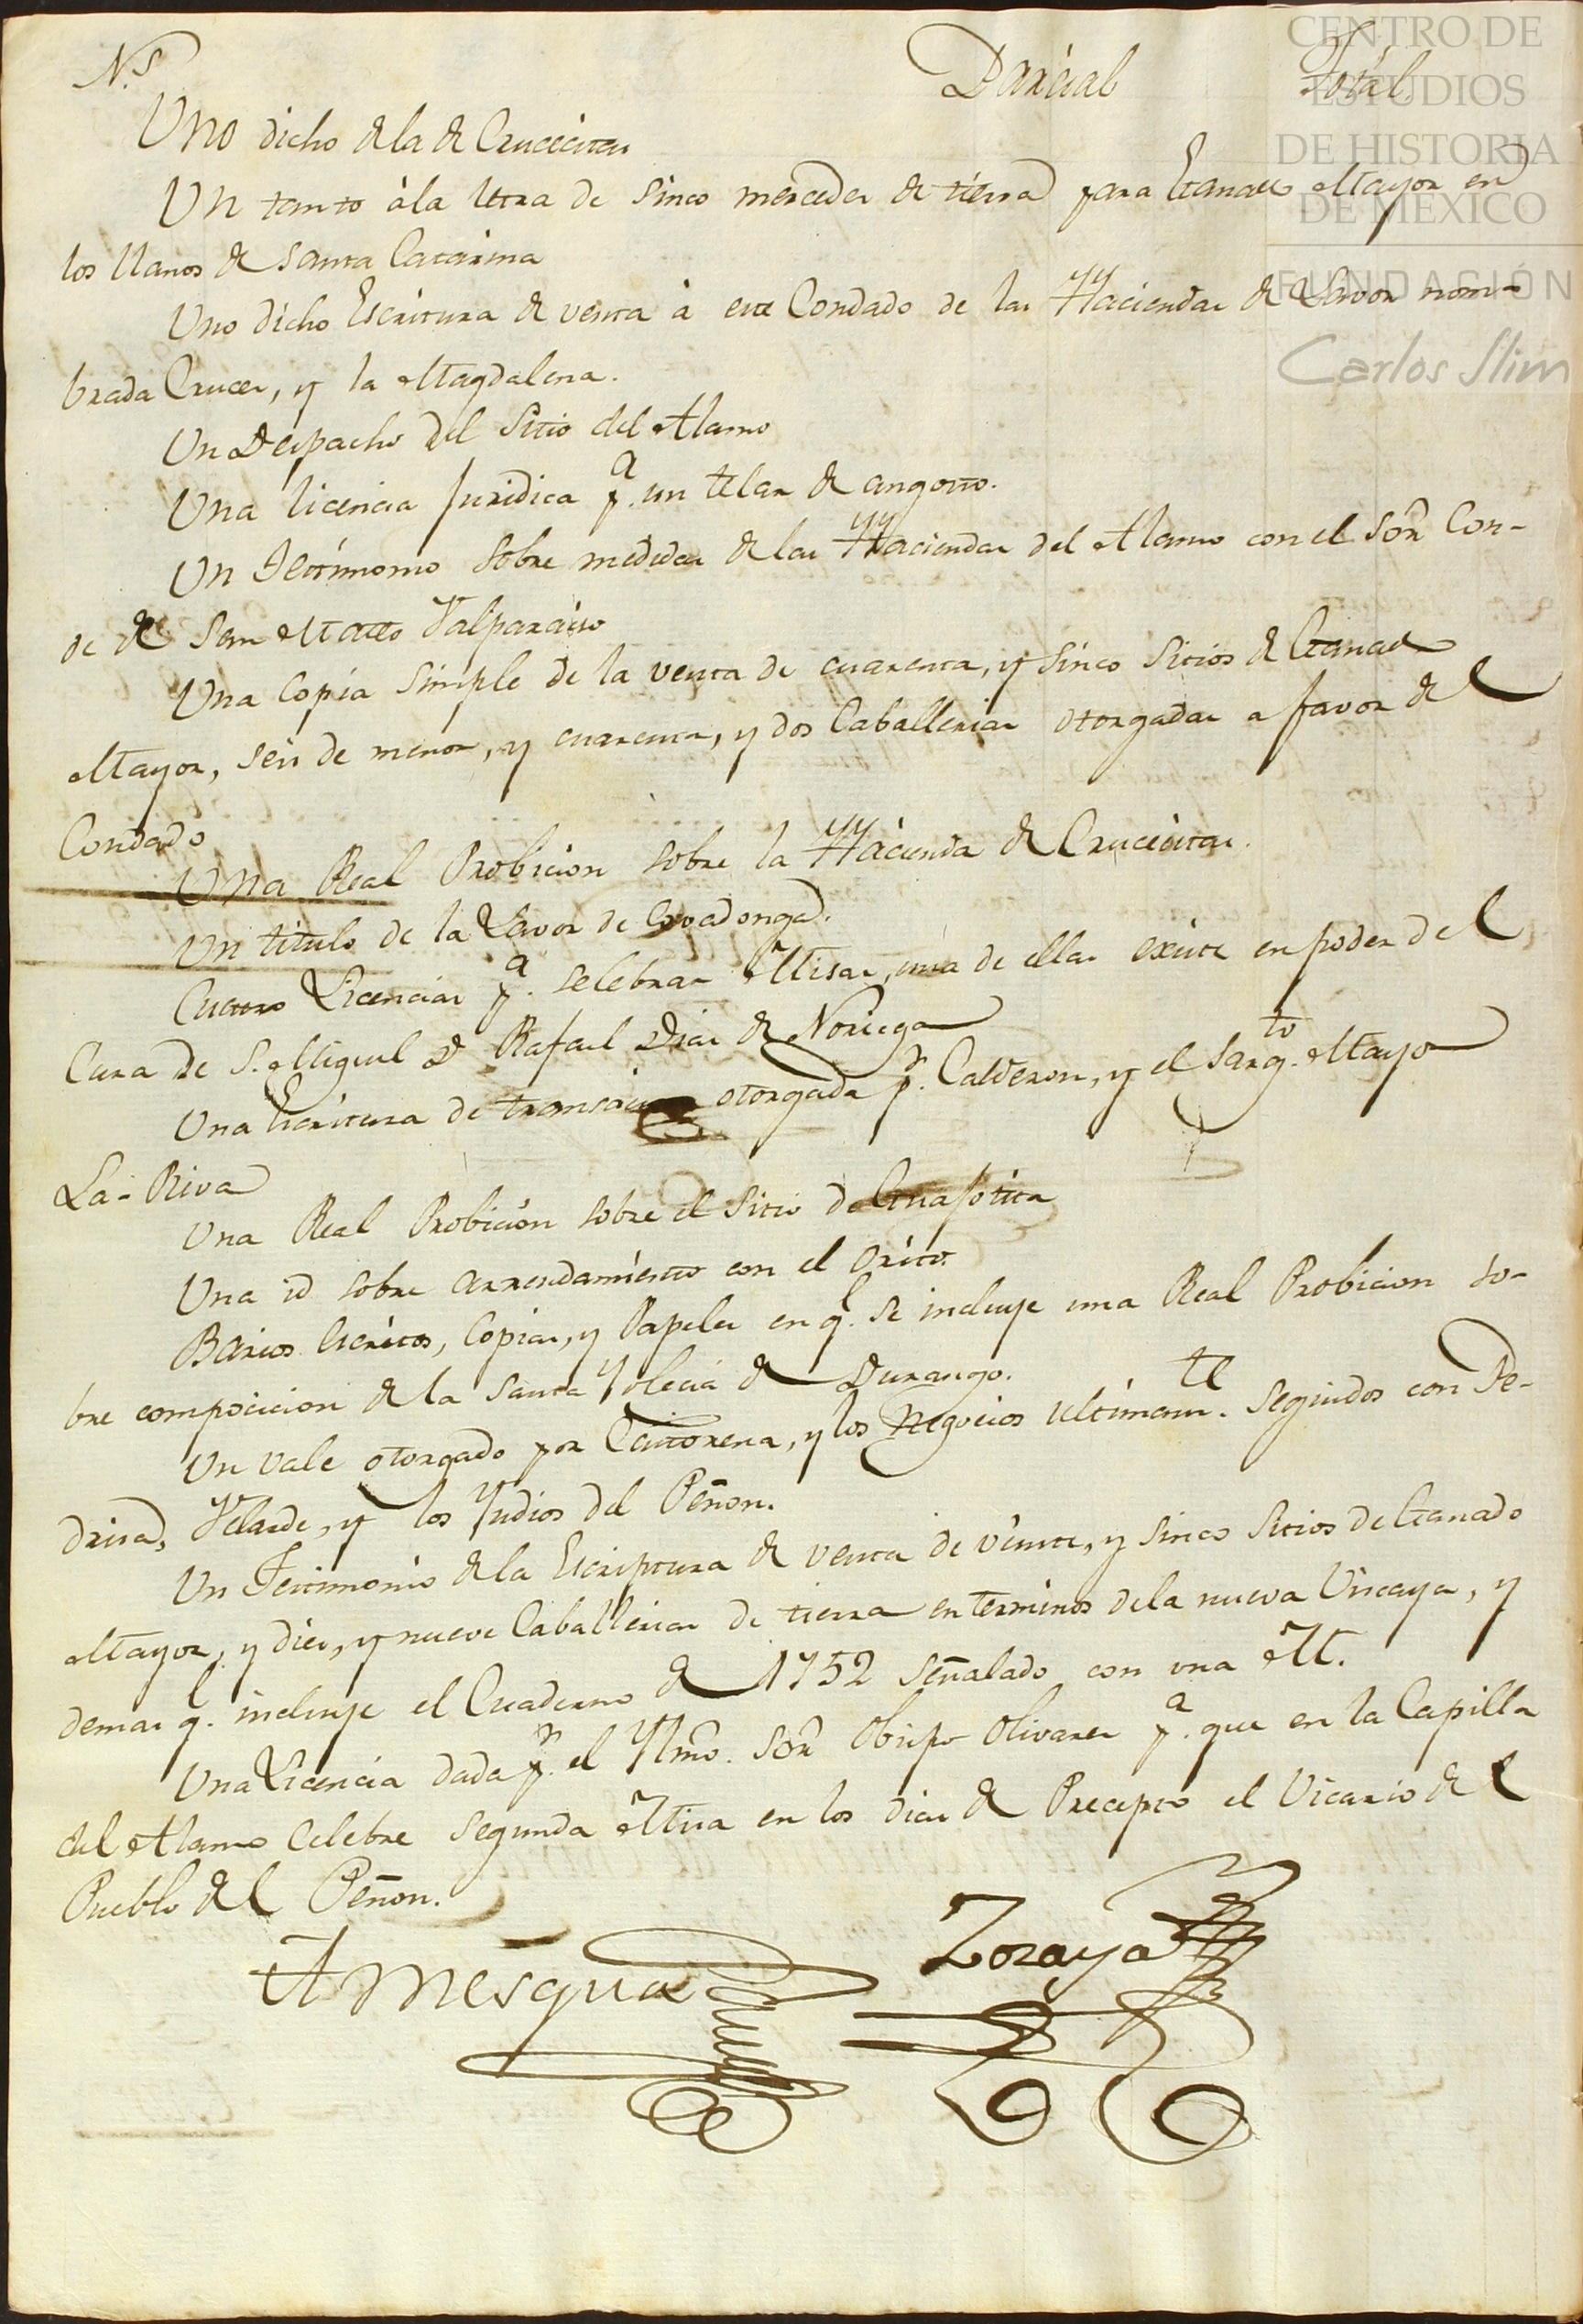 N.s Parcial Total
CENTRO DE
ESTUDIOS
DE HISTORIA
DE MÉXICO
FUNDASIÓN
Carlos Slim
Uno dicho de la de Crucecitas
Un tanto á la letra de sinco mercedes de tierra para Ganado Mayor en
los llanos de Santa Catarina
Uno dicho Escritura de venta á este Condado de las Haciendas de Lavor nom-
brada Cruces, y la Magdalena.
Un Despacho del Sitio del Alamo
Una licencia Juridica p.a un telar de angosto.
Un Testimonio sobre medidas de las Haciendas del Alamo con el Sor Con-
de de San Mateo Valparaiso
Una Copia Simple de la venta de cuarenta, y sinco Sitios de Ganado
Mayor, seis de menor, y cuarenta, y dos Caballerias otorgadas a favor del
Condado
Una Real Probicion sobre la Hacienda de Crucecitas.
Un titulo de la Lavor de Covadonga.
Cuatro Licencias p.a selebrar Misas, una de ellas existe en poder del
Cura de S. Miguel D Rafael Dias de Noriega
Una Escritura de transacion otorgada p.r Calderon, y el Sarg.to Mayor
La-Riva
Una Real Probicion sobre el Sitio de
Una id sobre arrendamiento con el Orito.
Barios Escritos, Copias, y Papeles en q.e se incluye una Real Probicion so-
bre composicion de la Santa Yglecia de Durango.
Un vale otorgado por Tentorena, y los Negocios ultimam.te seguidos con Pe-
driza, Velarde, y los Yndios del Peñon.
Un Testimonio de la Escriptura de venta de veinte, y sinco Sitios de Ganado
Mayor, y diez, y nueve Caballerias de tierra en terminos de la nueva Viscaya, y
demas q.e incluye el Cuaderno de 1752 señalado con una M.
Una Licencia dada p.r el Yllmo. Sor Obispo Olivares p.a que en la Capilla
del Alamo Celebre segunda Misa en los dias de Precepto el Vicario del
Pueblo del Peñon.
Amésqua Zoraya